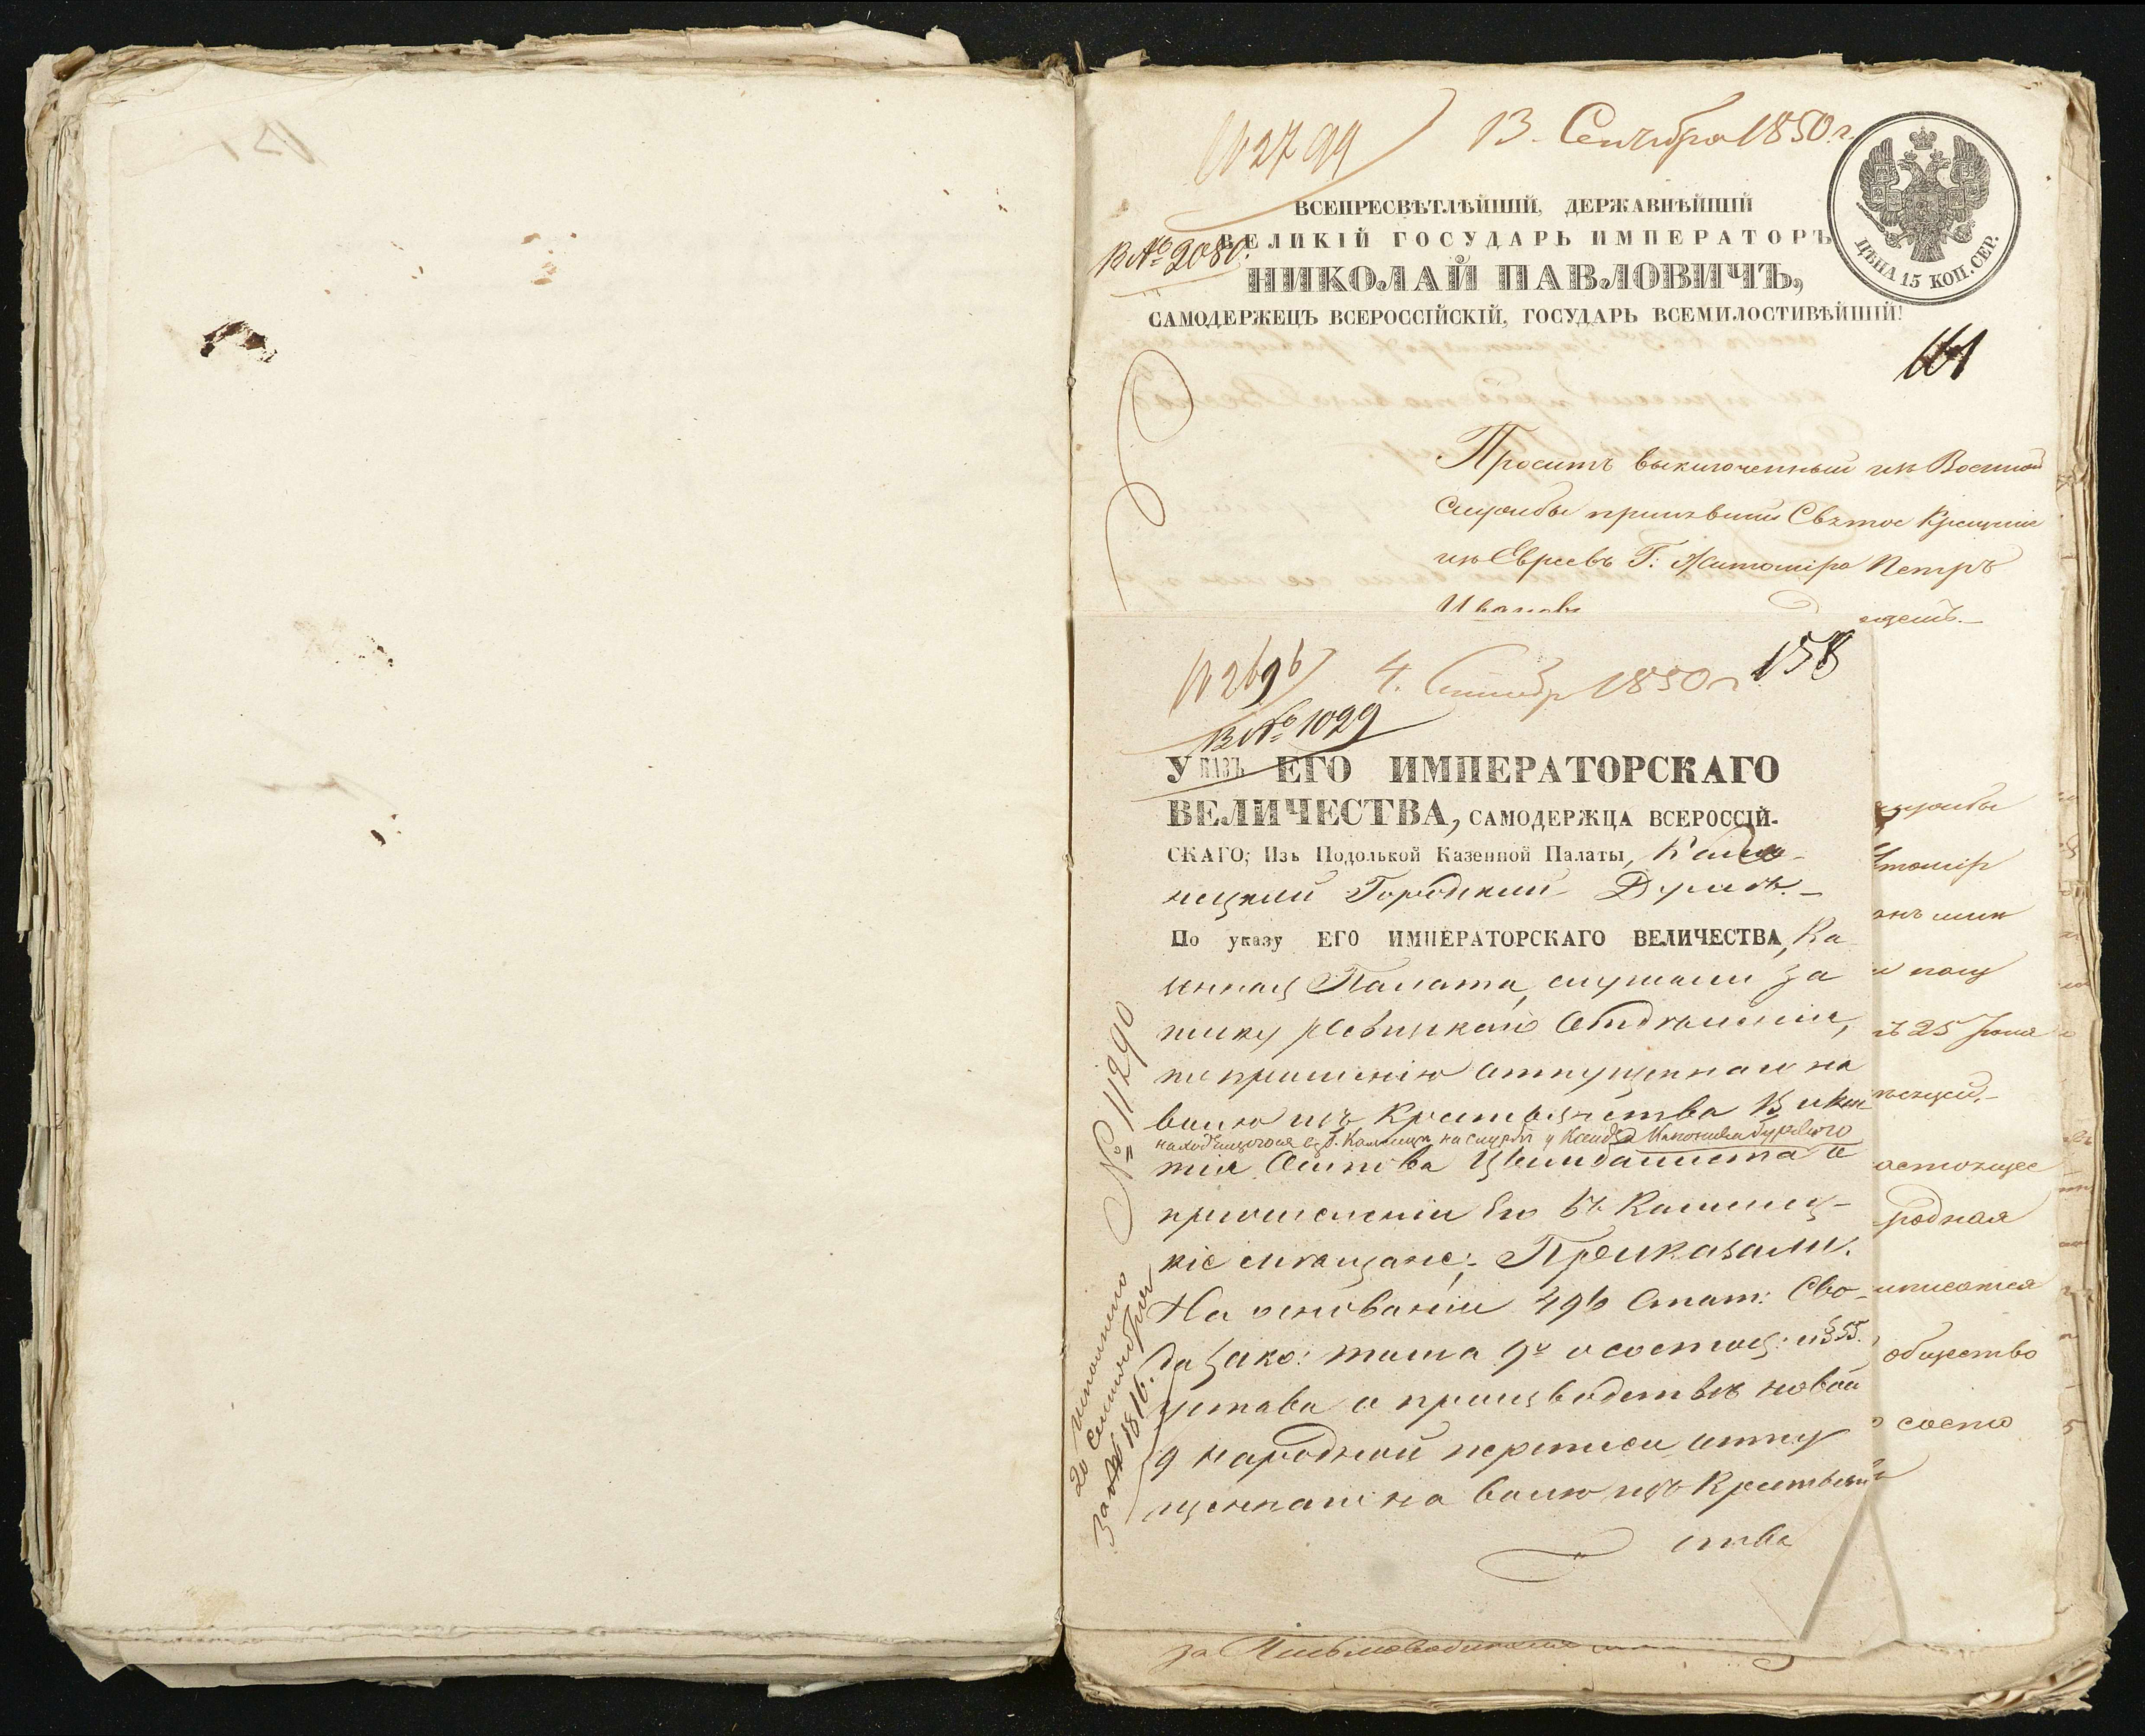 № 2799
13. Сентября 1850 г.
ВСЕПРЕСВѢТЛѢЙШІЙ, ДЕРЖАВНѢЙШІЙ
В № 2080.
ВЕЛИКІЙ ГОСУДАРЬ ИМПЕРАТОРЪ
НИКОЛАЙ ПАВЛОВИЧЪ,
САМОДЕРЖЕЦЪ ВСЕРОССІЙСКІЙ, ГОСУДАРЬ ВСЕМИЛОСТИВѢЙШІЙ!
ЦѢНА 15 КОП. СЕР.
161
Проситъ выключенный изъ Военной
Службы принявшій Святое Крещеніе
изъ Евреевъ Г: Житоміра Петръ
Ивановъ
ющемъ.—
№ 2696
4. Сентябр 1850 г
158
В № 1029
УКАЗЪ ЕГО ИМПЕРАТОРСКАГО
ВЕЛИЧЕСТВА, САМОДЕРЖЦА ВСЕРОССІЙ-
СКАГО; Изъ Подолькой Казенной Палаты, Каме-
нецкой Городской Думѣ.—
По указу ЕГО ИМПЕРАТОРСКАГО ВЕЛИЧЕСТВА, Ка-
зенная Палата, слушали за
писку Ревизкаго Отдѣленія,
по прошенію отпущеннаго на
волю изъ крестьянства Викен
находящогося въ г. Каменцѣ на службѣ у Ксендза
тія Осипова о
причисленіи Его въ Каменец-
кіе мѣщане; Приказали:
На основаніи 496 Стат: Сво-
да Зако: тома 9го о состоя: и § 55.
устава о производствѣ новой
9 народной переписи отпу
щеннаго на волю изъ Крестьян
ства
№ 11290
исполнено
20 Сентября
за № 1816.
службы
итомір
полу
25 Іюня
астоящее
родная
писатся
общество
состо
за Письмоводителя